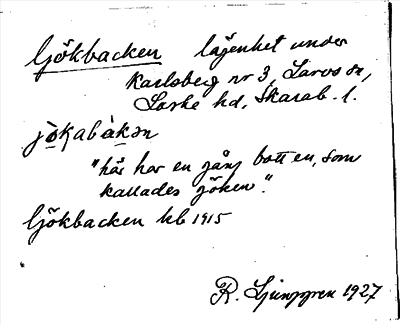 Gjökbacken lägenhet under
Karlsberg nr 3, Larvs sn,
Laske hd, Skarab. l.
jökabàkən
"här har en gång bott en, som
kallades göken".
Gjökbacken kb 1915
R. Ljunggren 1927